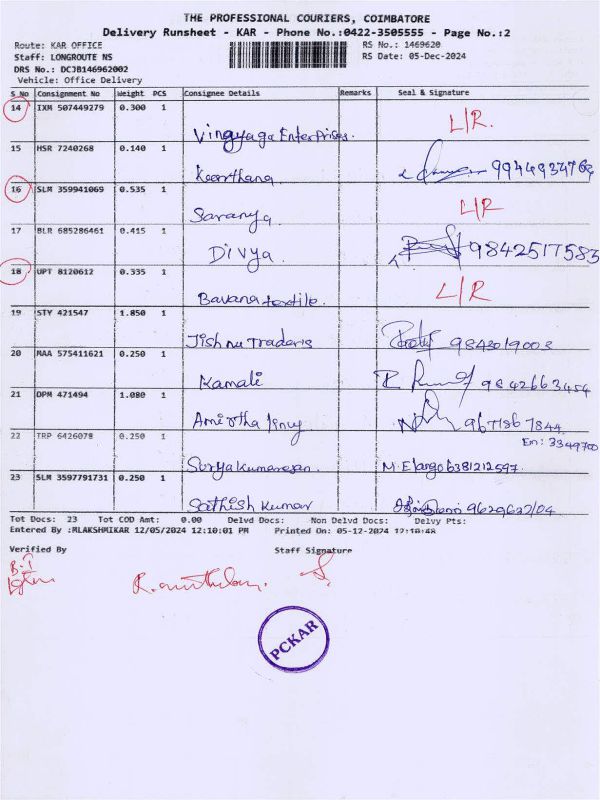 THE PROFESSIONAL COURIERS, COIMBATORE
Delivery Runsheet - KAR - Phone No.:0422-3505555 - Page No.:2
Route: KAR OFFICE RS No.: 1469620
Staff: LONGROUTE NS RS Date: 05-Dec-2024
DRS No.: DCJB146962002
Vehicle: Office Delivery
S_No Consignment No Weight PCS Consignee Details Remarks Seal & Signature
14 IXM 507449279 0.300 1
Vingyaga Enterprises. L/R.
15 HSR 7240268 0.140 1
Keerthana
16 SLM 359941069 0.535 1
Saranya L/R
17 BLR 685286461 0.415 1
Divya 9842517583
18 UPT 8120612 0.335 1
Bavana textile. L/R
19 STY 421547 1.850 1
Jishnu Traders 9843019003
20 MAA 575411621 0.250 1
Kamali 9842663454
21 DPM 471494 1.080 1
Amirtha 9671867844
22 TRP 6426078 0.250 1 En: 3349700
Suryakumaresan. M. Elango 6381212597.
23 SLM 3597791731 0.250 1
Sathish kumar
Tot Docs: 23 Tot COD Amt: 0.00 Delvd Docs: Non Delvd Docs: Delvy Pts:
Entered By :MLAKSHMIKAR 12/05/2024 12:10:01 PM Printed On: 05-12-2024 12:10:48
Verified By Staff Signature
PCKAR